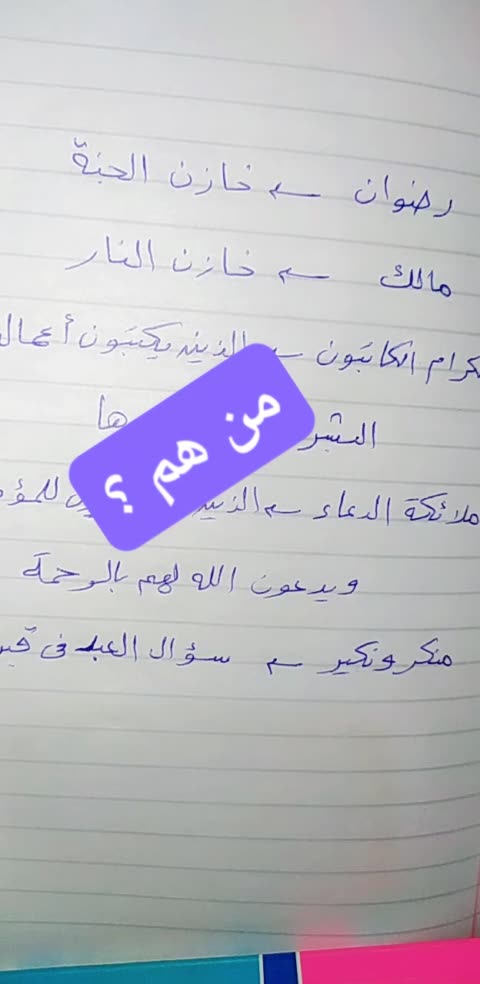 رضوان ← خازن الجنة
مالك ← خازن النار
كرام الكاتبون ← الذين يكتبون أعمال
البشر ها
من هم ؟
ملائكة الدعاء ← الذين
ويدعون الله لهم بالرحمة
منكر ونكير ← سؤال العبد في